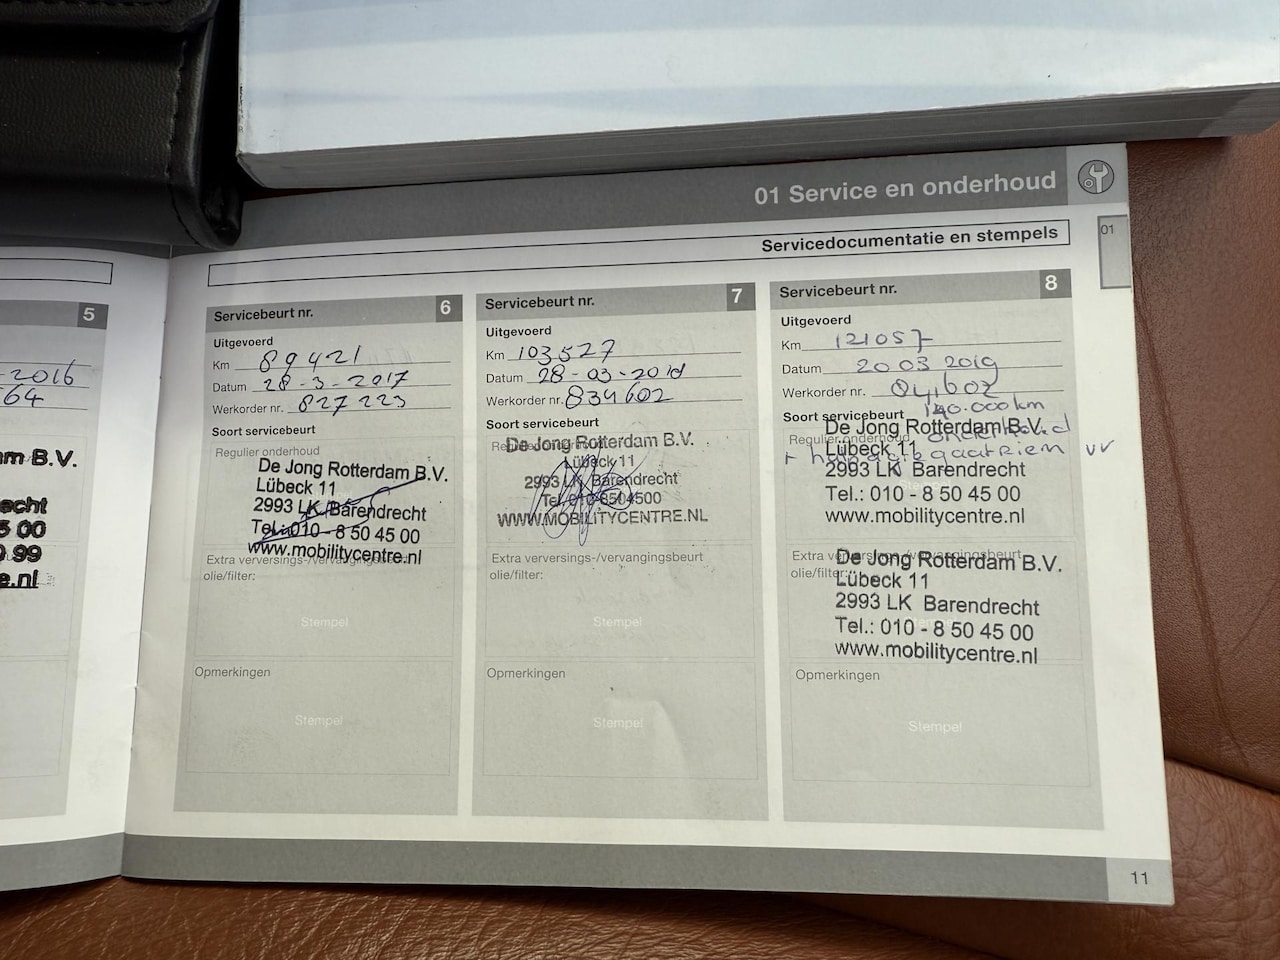 01 Service en onderhoud
01
Servicedocumentatie en stempels
5
2016
64
m B.V.
acht
5 00
0.99
e.nl
Servicebeurt nr. 6
Uitgevoerd
Km 89421
Datum 28-3-2017
Werkorder nr. 827223
Soort servicebeurt
Regulier onderhoud
De Jong Rotterdam B.V.
Lübeck 11
2993 LK Barendrecht
Tel.: 010 - 8 50 45 00
www.mobilitycentre.nl
Extra verversings-/vervangingsbeurt
olie/filter:
Stempel
Opmerkingen
Stempel
Servicebeurt nr. 7
Uitgevoerd
Km 103527
Datum 28-03-2018
Werkorder nr. 834602
Soort servicebeurt
De Jong Rotterdam B.V.
Lübeck 11
2993 LK Barendrecht
Tel. 010-8504500
WWW.MOBILITYCENTRE.NL
Extra verversings-/vervangingsbeurt
olie/filter:
Stempel
Opmerkingen
Stempel
Servicebeurt nr. 8
Uitgevoerd
Km 121057
Datum 20 03 2019
Werkorder nr. 841602
Soort servicebeurt 120.000km
Regulier onderhoud onderhoud
De Jong Rotterdam B.V.
Lübeck 11
2993 LK Barendrecht
Tel.: 010 - 8 50 45 00
www.mobilitycentre.nl
Extra verversings-/vervangingsbeurt
olie/filter:
De Jong Rotterdam B.V.
Lübeck 11
2993 LK Barendrecht
Tel.: 010 - 8 50 45 00
www.mobilitycentre.nl
Opmerkingen
Stempel
11